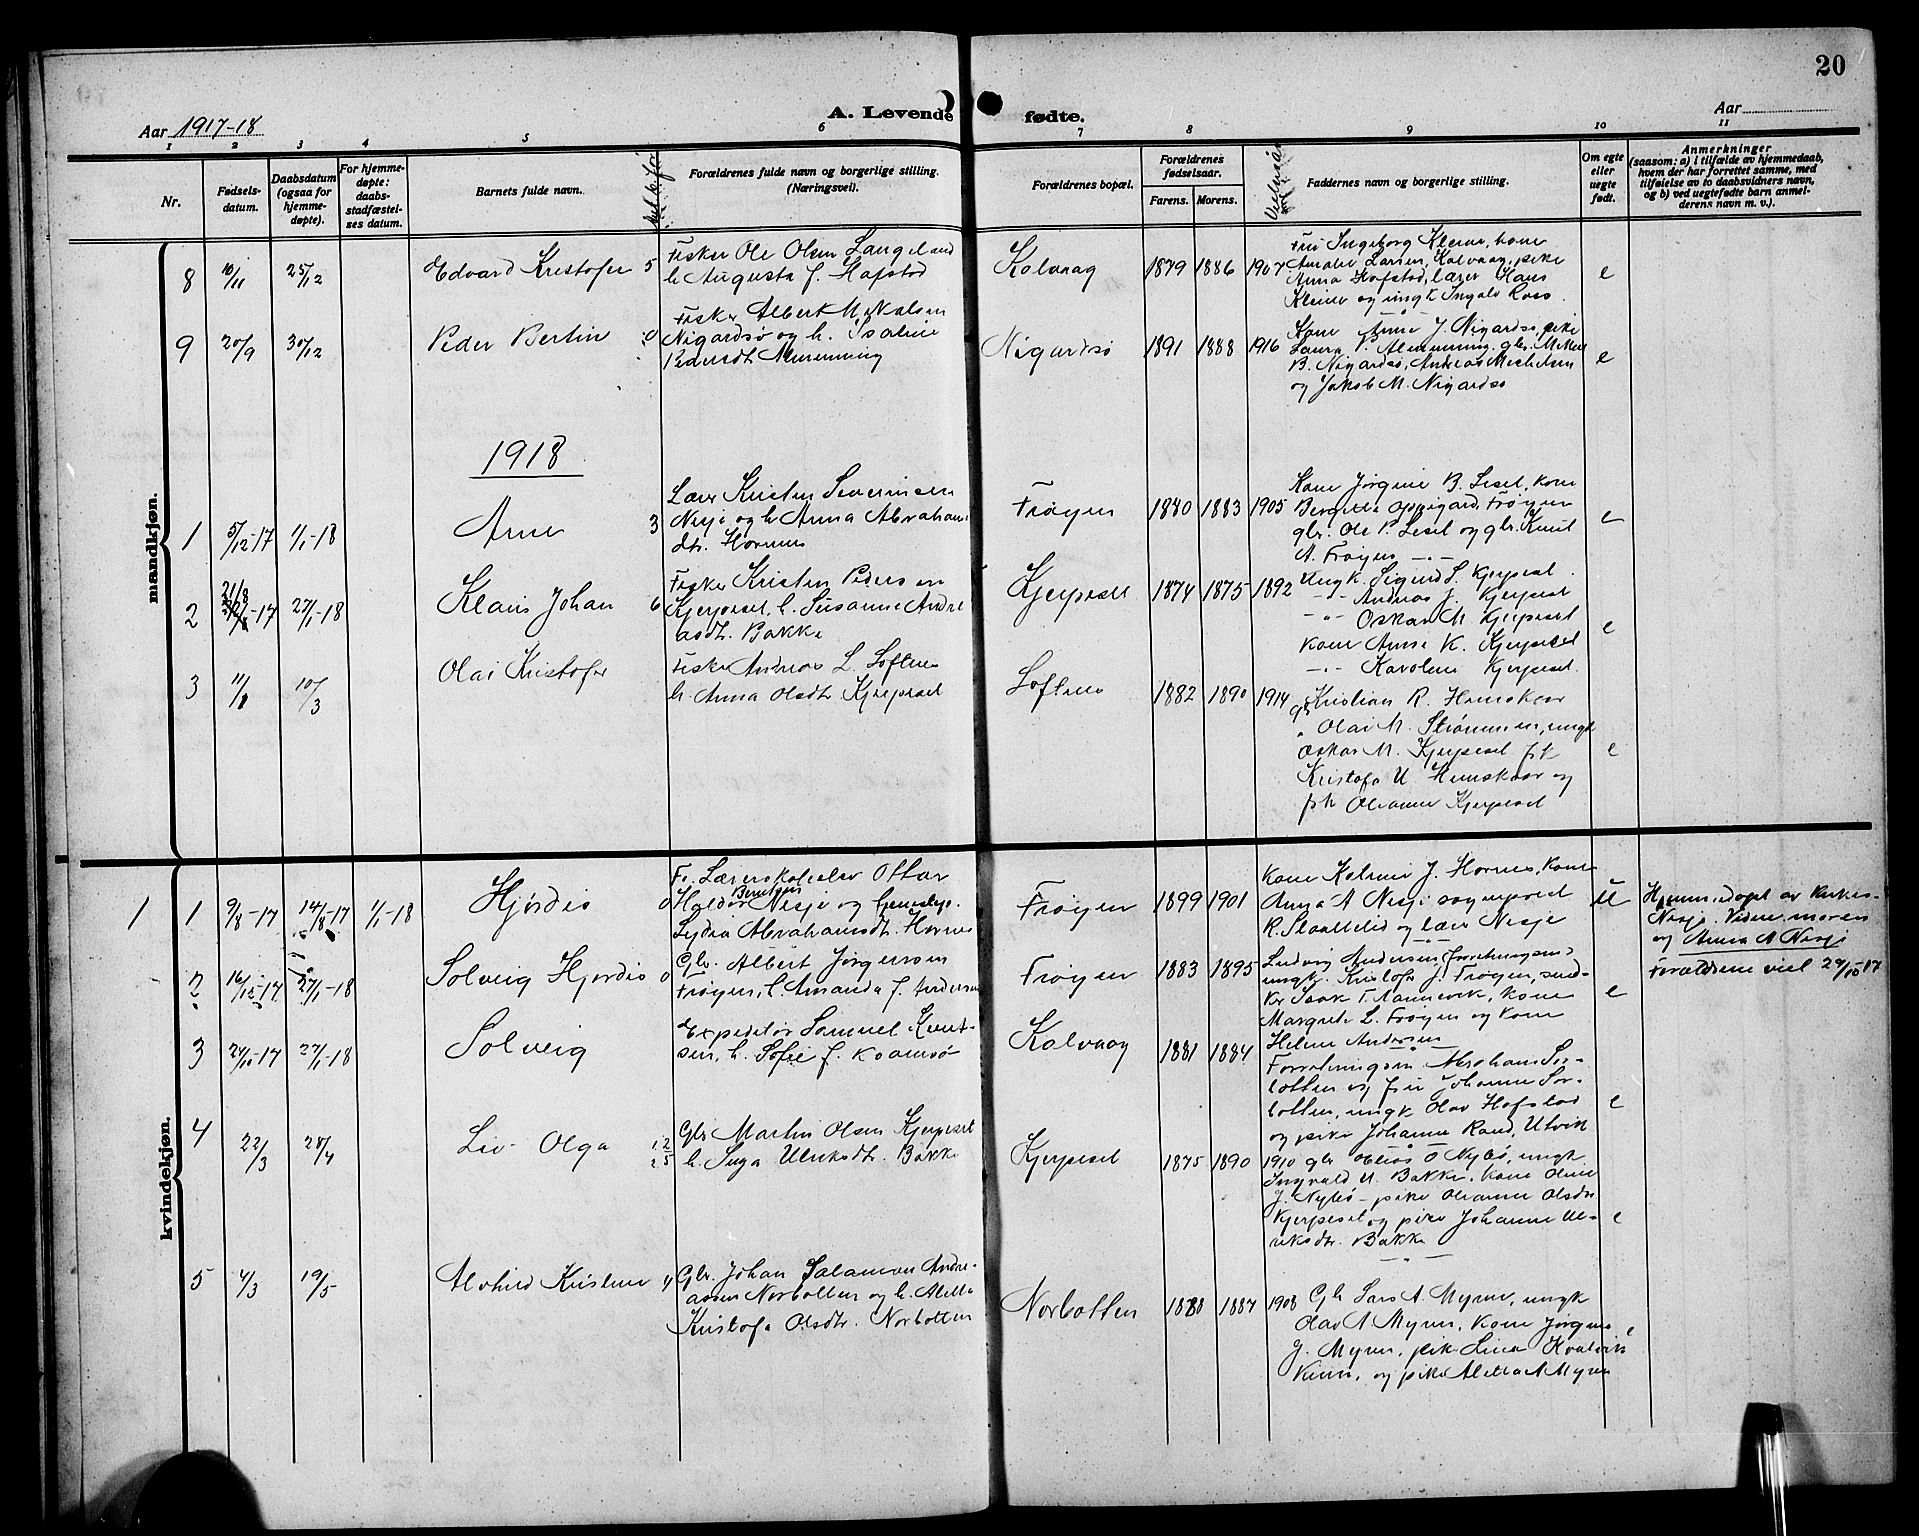 20
A. Levende fødte.
Aar 1917-18
Aar
1 2 3 4 5 6 7 8 9 10 11
Nr.
Fødsels-
datum.
Daabsdatum
(ogsaa for
hjemme-
døpte).
For hjemme-
døpte:
daabs-
stadfæstel-
ses datum.
Barnets fulde navn.
Forældrenes fulde navn og borgerlige stilling.
(Næringsvei).
Forældrenes bopæl.
Forældrenes
fødselsaar.
Farens. Morens.
Faddernes navn og borgerlige stilling.
Om egte
eller
uegte
født.
Anmerkninger
(saasom: a) i tilfælde av hjemmedaab,
hvem der har forrettet samme, med
tilføielse av to daabsvidners navn,
og b) ved uegtefødte barn anmel-
derens navn m. v.).
mandkjøn.
8 10/11 25/12 Edvard Kristofer 5
Fisker Ole Olsen Langeland
h. Augusta f. Hafstad
Kalvaag 1879 1886 1907
Fru Ingeborg Kleive, kone
Amalie Larsen, Kalvaag, pike
Anna Hafstad, lærer Hans
Kleive og ungk Ingalv Roos.
e
9 20/9 30/12 Peder Bertin 0
Fisker Albert Mikalsen
Nigardsø og h. Isaline
Pedersdt Almenning
Nigardsø 1891 1888 1916
Kone Anne J. Nigardsø, pike
Laura P. Almenning, gbr. Mikal
B. Nigardsø, Andreas Michelsen
og Jakob M. Nigardsø
e
1918
1 5/12-17 1/1-18 Arne 3
Lærer Kristen Severinsen
Nesje og h. Anna Abrahams
dtr. Hornes
Frøyen 1880 1883 1905
Kone Jørgine B. Lesel, kone
Bergitte Oppigard Frøyen
gbr. Ole P. Lesel og gbr. Knut
A. Frøyen
e
2 21/8 -17 27/1-18 Klaus Johan 6
Fisker Kristen Pedersen
Kjerpeset, h. Susanne Andre
asdt. Bakke
Kjerpeset 1874 1875 1892
Ungk. Sigurd S. Kjerpeset
-"- Andreas J. Kjerpeset
-"- Oskar M Kjerpeset
kone Anne K. Kjerpeset
-"- Karoline Kjerpeset
e
3 11/1 10/3 Olai Kristofer
Fisker Andreas L. Loftnes
h. Anna Olsdtr Kjerpeset
Loftnes 1882 1890 1914
gbr Kristian R. Hamskaar
" Olai M. Strømmen, ungk
Oskar M. Kjerpeset, pk
Kristofa U. Hamskaar og
pk Olianne Kjerpeset
e
kvindekjøn.
1 1 9/8-17 14/8-17 1/1-18 Hjørdis 0
Fr. Lærerskoleelev Ottar
Haldor Berntsen Nesje og
Lydia Abrahamsdt. Hornes
Frøyen 1899 1901
Kone Kalrine J. Hornes, kone
Anna A Nesje sogneprest
R. Staalelid og lærer Nesje
U
Hjemmedøpt av kirkes.
Nesje. Vidne, moren
og Anna A Nesje
Forældrene viet 24/10-17
2 16/12-17 27/1-18 Solveig Hjørdis 0
Gbr. Albert Jørgensen
Frøyen, h. Amanda f. Andersen
Frøyen 1883 1895
Ludvig Andersen (forretningsm)
ungk. Kristofer J. Frøyen, sned-
ker Isak T. Nannevik, kone
Margrete L. Frøyen og kone
Helene Andersen
e
3 24/10-17 27/1-18 Solveig
Expeditør Samuel Knut-
sen, h. Sofie f. Kaamsø-
Kalvaag 1881 1884
Forretningsm Abraham Sør-
botten og fru Johanne Sør-
botten, ungk Olav Hafstad
og pike Johanne Rand, Utvik
e
4 22/3 28/4 Liv Olga
Gbr Martin Olsen Kjerpeset
h. Inga Ulriksdt. Bakke
Kjerpeset 1875 1890
1910 gbr Elias O Nybø, ungk
Ingvald U. Bakke, kone Oline
J. Nybø - pike Olianne Olsdtr
Kjerpeset og pike Johanne Ul-
riksdtr. Bakke
e
5 4/3 19/5 Alvhild Kristine 4
Gbr. Johan Salamon Andre-
assen Norbotten og h. Aletta
Kristofa Olsdtr. Norbotten
Norbotten 1880 1887 1908
Gbr Lars A. Myren, ungk
Olav A Myren, kone Jørgine
J. Myren, pike Lina Hvalvik
Kinn, og pike Aletta A Myren
e